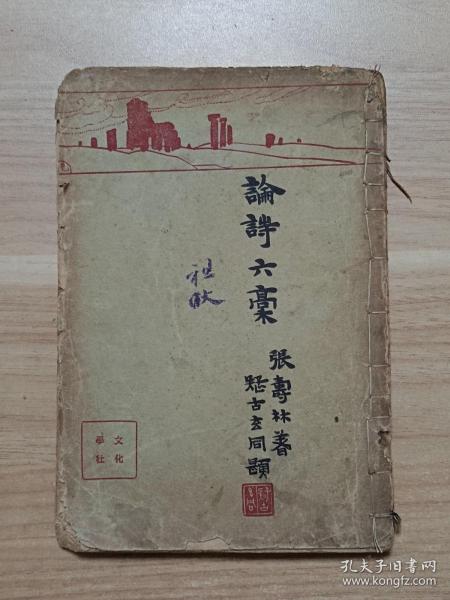 論詩六稾
張壽林著
疑古玄同題
文化
學社
孔夫子旧书网
www.kongfz.com